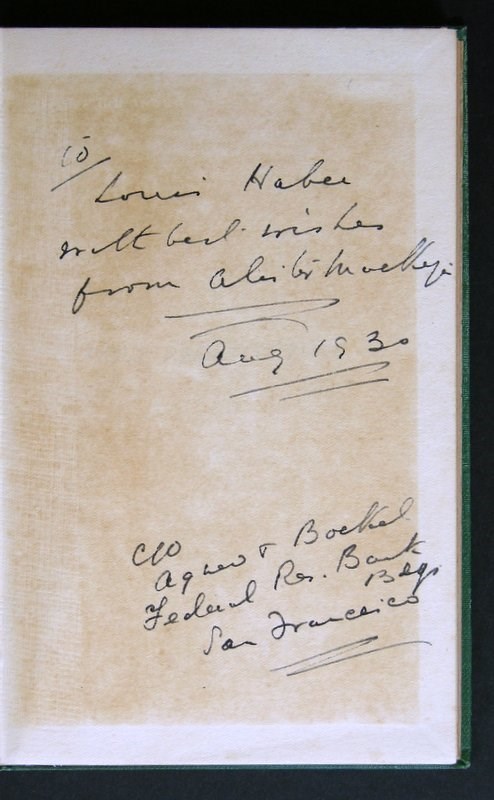 to
Louis Haber
with best wishes
from Alister Mackenzie
Aug 1930
c/o
Agnew & Boekel
Federal Res. Bank
Bldg
San Francisco